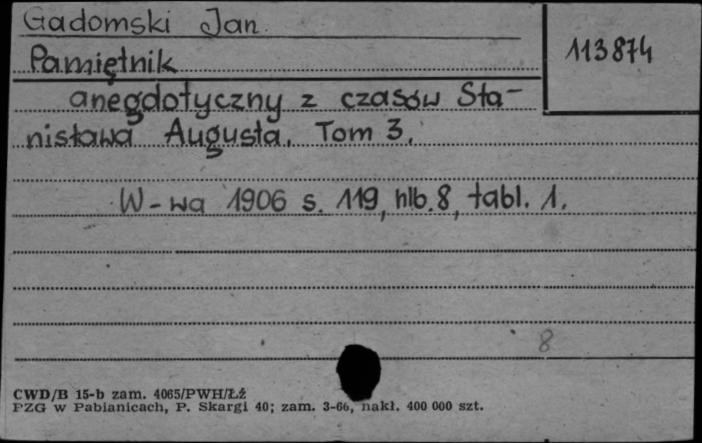 Gadomski Jan.
113874
Pamiętnik
anegdotyczny z czasów Sta-
nisława Augusta. Tom 3.
W-wa 1906 s. 119, hlb. 8, tabl. 1.
8
CWD/B 15-b zam. 4065/PWH/Łź
PZG w Pabianicach, P. Skargi 40; zam. 3-66, nakł. 400 000 szt.